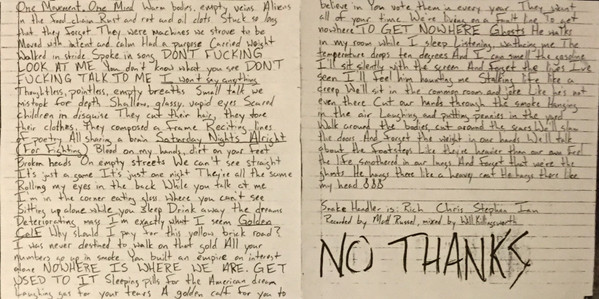 One Movement, One Mind Warm bodies, empty veins Aliens
in the food chain Rust and rot and oil clots Stuck so long
that they forgot They were machines we strove to be
Moved with intent and calm Had a purpose Carried weight
Walked in stride Spoke in song DON'T FUCKING
LOOK AT ME You don't know what you see DON'T
FUCKING TALK TO ME I won't say anything
Thoughtless, pointless, empty breaths Small talk we
mistook for depth Shallow, glassy, vapid eyes Scared
children in disguise They cut their hair, they tore
their clothes, they composed a frame Reciting lines
of poetry All sharing a brain Saturday Night's Alright
(For Fighting) Blood on my hands, dirt on your feet
Broken heads On empty streets We can't see straight
It's just a game It's just one night They're all the same
Rolling my eyes in the back While you talk at me
I'm in the corner eating glass Where you can't see
Sitting up alone while you sleep Drink away the dreams
Deteriorating mass I'm exactly what I seem Golden
Calf Why should I pay for this yellow brick road?
I was never destined to walk on that gold All your
numbers go up in smoke You built an empire on interest
alone NOWHERE IS WHERE WE ARE. GET
USED TO IT Sleeping pills for the American dream
Laughing gas for your tears A golden calf for you to
believe in You vote them in every year They want
all of your time We're living on a fault line To get
nowhere TO GET NOWHERE Ghosts He walks
in my room while I sleep Listening, watching me The
temperature drops ten degrees And I can smell the gasoline
I'll sit silently with the screen And forget the lies I've
seen I'll feel him haunting me Stalking life like a
creep We'll sit in the common room and joke Like he's not
even there Cut our hands through the smoke Hanging
in the air Laughing and putting pennies in the yard
Walk around the bodies, cut around the scars We'll slam
the door And forget the weight in our hands We'll talk
about the footsteps Like they're heavier than our own Feel
the life smothered in our lungs And forget that we're the
ghosts He hangs there like a heavy coat He hangs there like
my head
Smoke Handler is: Rich Chris Stephen Ian
Recorded by Matt Russel, mixed by Will Killingsworth
NO THANKS